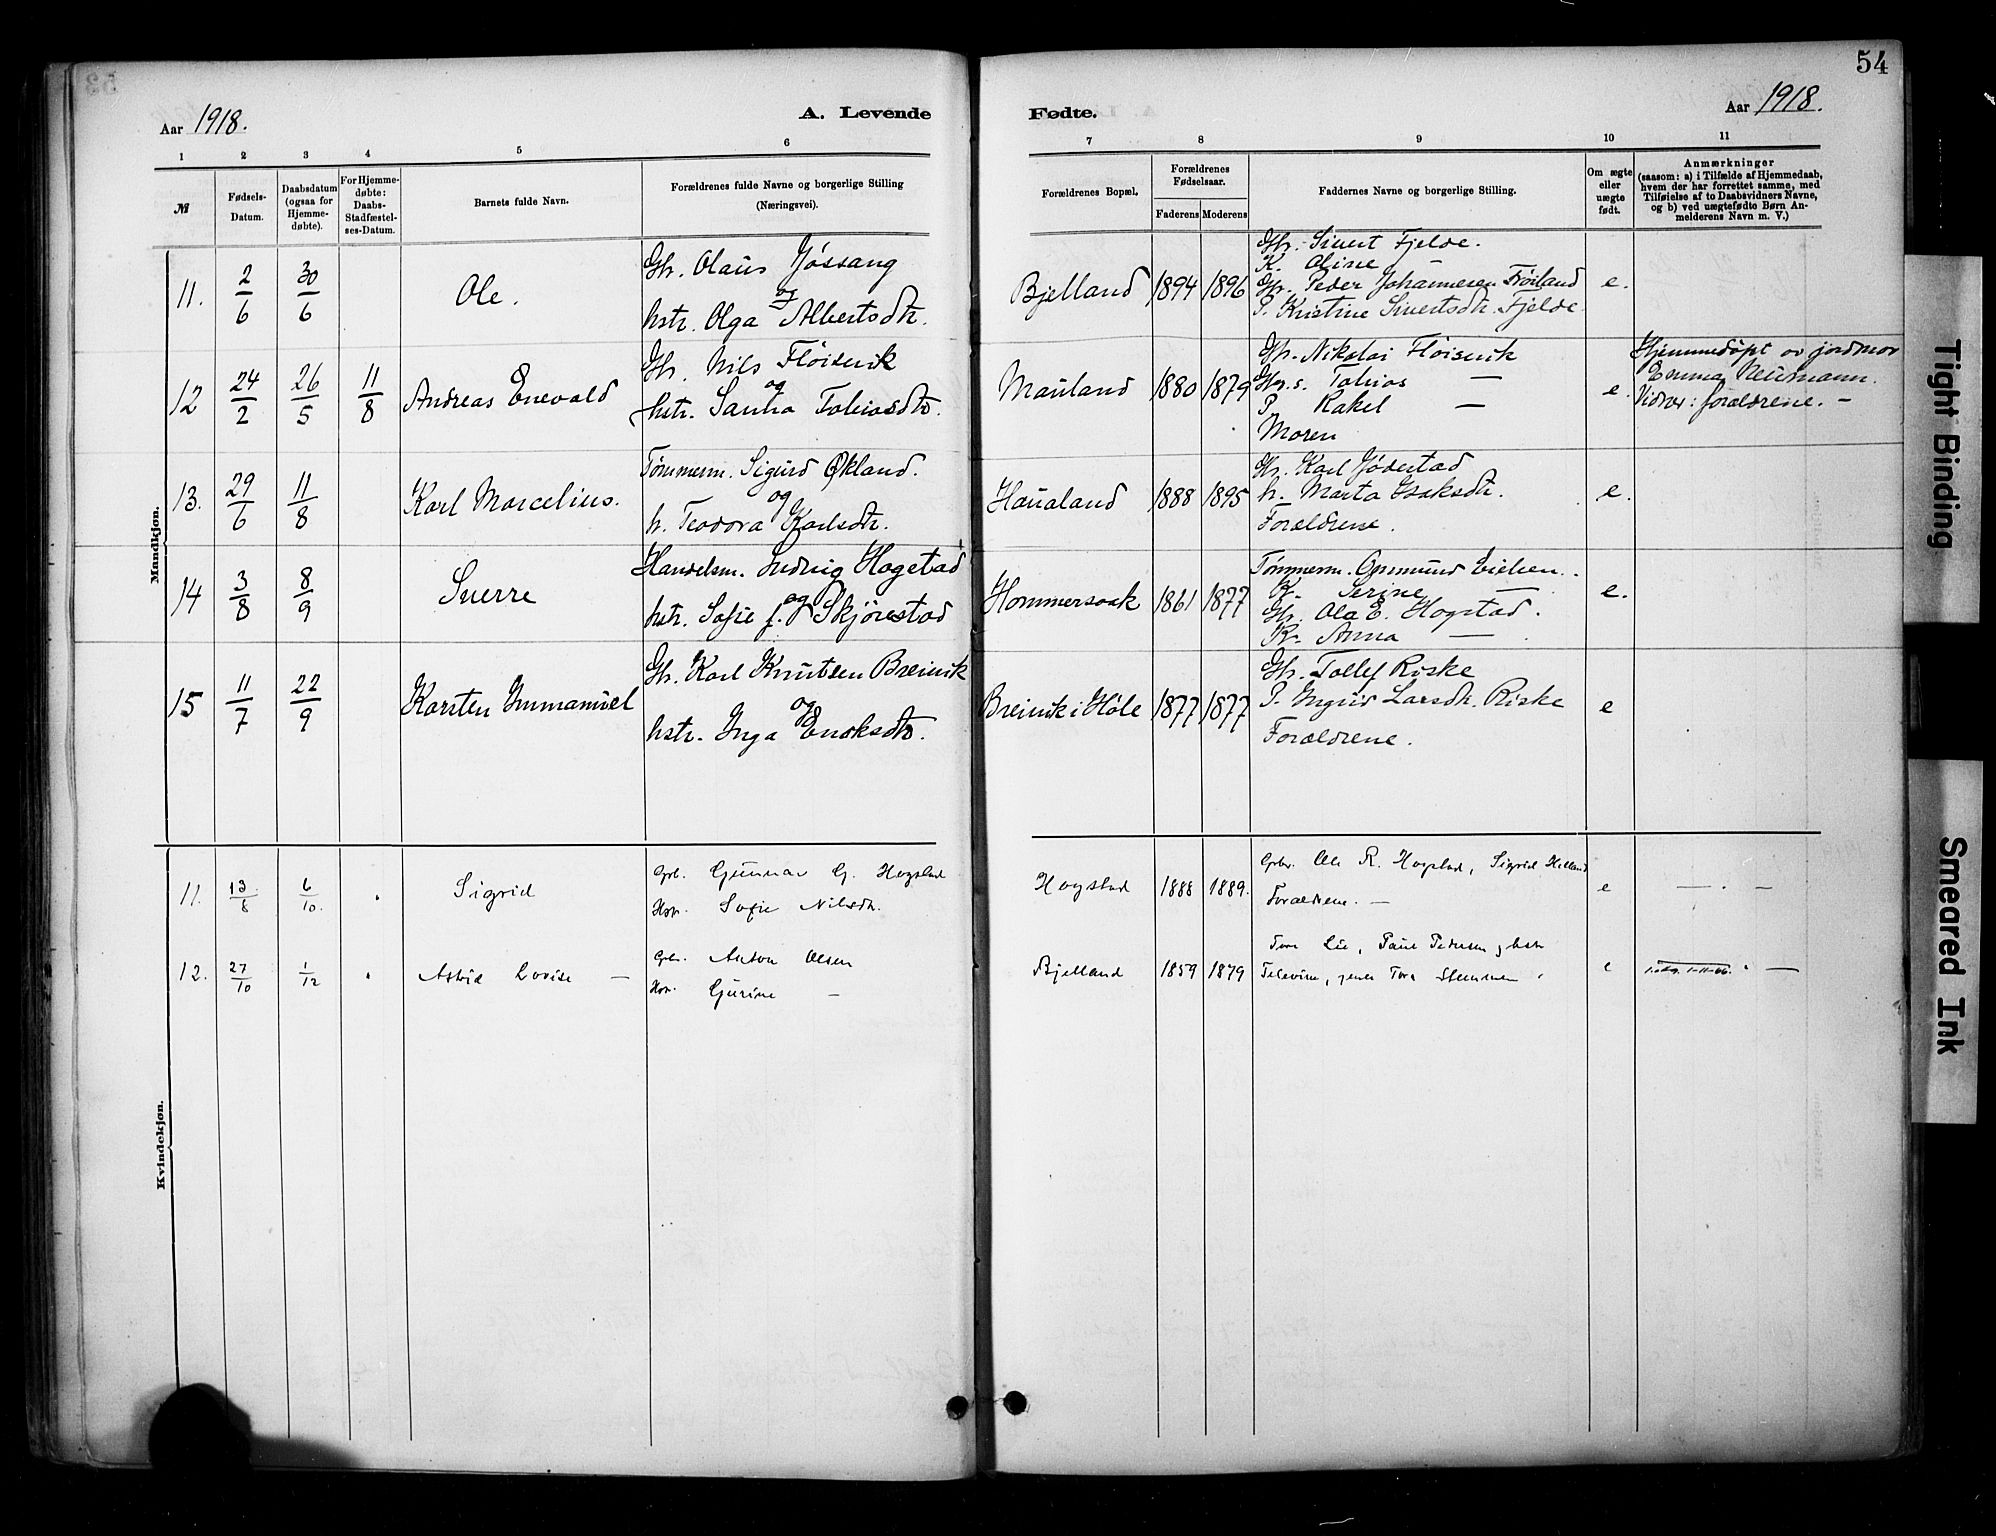 54
Aar 1918.
A. Levende
Fødte.
Aar 1918.
1 2 3 4 5 6
7 8 9 10 11
№
Fødsels-
Datum.
Daabsdatum
(ogsaa for
Hjemme-
døbte).
For Hjemme-
døbte:
Daabs-
Stadfæstel-
ses-Datum.
Barnets fulde Navn.
Forældrenes fulde Navne og borgerlige Stilling
(Næringsvei).
Forældrenes Bopæl.
Forældrenes
Fødselsaar.
Faderens Moderens
Faddernes Navne og borgerlige Stilling.
Om ægte
eller
uægte
født.
Anmærkninger
(saasom: a) i Tilfælde af Hjemmedaab,
hvem der har forrettet samme, med
Tilføielse af to Daabsvidners Navne,
og b) ved uægtefødte Børn An-
melderens Navn m. V.)
Mandkjøn.
11. 2/6 30/6 Ole.
Gbr. Olaus Jøssang
og
hstr. Olga Albertsdtr.
Bjelland 1894 1896
Gbr. Sivert Fjelde.
K. Oline
Gbr. Peder Johannesen Frøiland
P. Kristine Sivertsdtr. Fjelde.
e.
12 24/2 26/5 11/8 Andreas Enevald
Gbr. Nils Fløisvik
og
hstr. Sanna Tobiasdtr.
Mauland 1880 1879
Gbr. Nikolai Fløisvik
Gbr.s. Tobias —
P. Rakel —
Moren
e.
Hjemmedøpt av jordmor
Emma Neumann.
Vidner: forældrene. —
13. 29/6 11/8 Karl Marcelius.
Tømmerm. Sigurd Økland.
og
h. Teodora Karlsdtr.
Haualand 1888 1895
Gbr. Karl Jødestad
h. Marta Isaksdtr.
Forældrene.
e.
14 3/8 8/9 Sverre
Handelsm. Ludvig Hogstad
og
hstr. Sofie f. Skjørestad
Hommersaak 1861 1877
Tømmerm. Gunmund Eielsen.
K. Serine —
Gbr. Ola E. Hogstad.
K. Anna —
e.
15 11/7 22/9 Karsten Immanuel
Gbr. Karl Knutsen Breivik
og
hstr. Inga Enoksdtr.
Breivik i Høle 1877 1877
Gbr. Tollef Riske
P. Ingrid Larsdtr. Riske
Forældrene.
e
Kvindekjøn.
11. 13/8 6/10. Sigrid
Gbr. Gunnar G. Hogstad
Hstr. Sofie Nilsdtr.
Hogstad 1888 1889.
Gbr. Ole R. Hogstad, Sigrid Helland
Forældrene. —
e — . —
12. 27/10 1/12 Astrid Lovise —
Gbr. Anton Olsen
Hstr. Gurine —
Bjelland 1859 1879
Tore Lie, Paul Pedersen,
e
Tight Binding
Smeared Ink